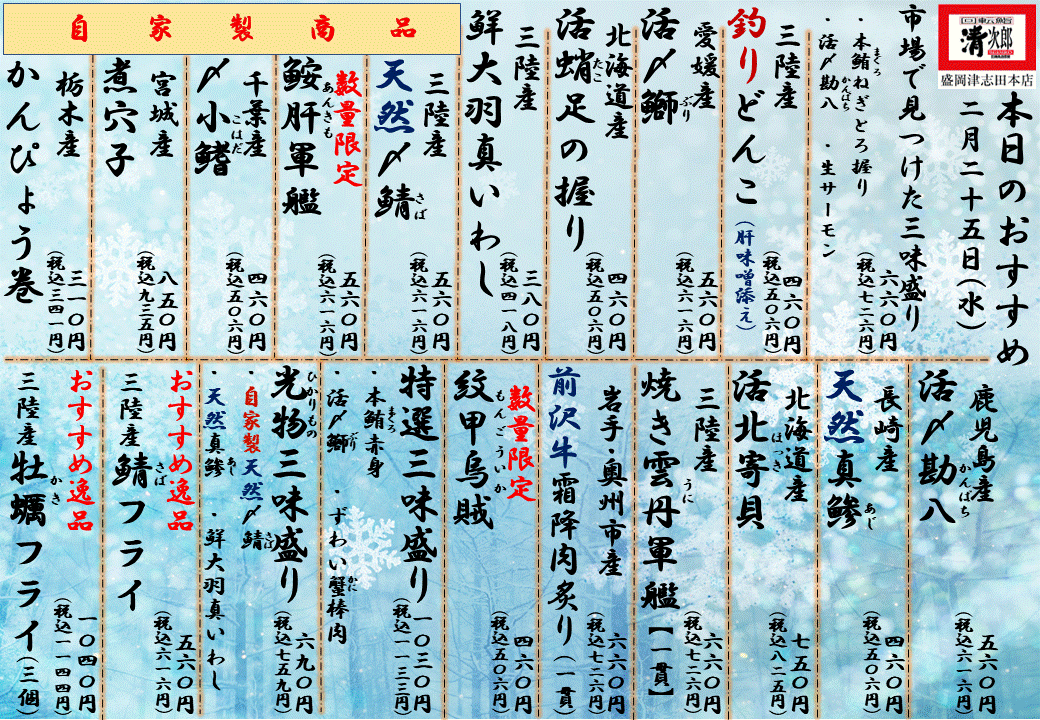 回転鮨
清次郎
盛岡津志田本店
本日のおすすめ
二月二十五日(水)
市場で見つけた三味盛り
・本鮪ねぎとろ握り
まぐろ
・活〆勘八
かんぱち
・生サーモン
六六〇円
(税込七二六円)
三陸産
釣りどんこ
(肝味噌添え)
四六〇円
(税込五〇六円)
愛媛産
活〆鰤
ぶり
五六〇円
(税込六一六円)
北海道産
活蛸足の握り
たこ
四六〇円
(税込五〇六円)
三陸産
鮮大羽真いわし
三八〇円
(税込四一八円)
自家製商品
三陸産
天然〆鯖
さば
五六〇円
(税込六一六円)
数量限定
鮟肝軍艦
あんきも
五六〇円
(税込六一六円)
千葉産
〆小鰭
こはだ
四六〇円
(税込五〇六円)
宮城産
煮穴子
八五〇円
(税込九三五円)
栃木産
かんぴょう巻
三一〇円
(税込三四一円)
鹿児島産
活〆勘八
かんぱち
五六〇円
(税込六一六円)
長崎産
天然真鯵
あじ
四六〇円
(税込五〇六円)
北海道産
活北寄貝
ほっき
七五〇円
(税込八二五円)
三陸産
焼き雲丹軍艦【一貫】
うに
六六〇円
(税込七二六円)
岩手・奥州市産
前沢牛霜降肉炙り(一貫)
六六〇円
(税込七二六円)
数量限定
紋甲烏賊
もんごういか
四六〇円
(税込五〇六円)
特選三味盛り
・本鮪赤身
まぐろ
・活〆鰤
ぶり
・ずわい蟹棒肉
かに
一〇三〇円
(税込一一三三円)
光物三味盛り
ひかりもの
・自家製天然〆鯖
さば
・天然真鯵
あじ
・鮮大羽真いわし
六九〇円
(税込七五九円)
おすすめ逸品
三陸産鯖フライ
さば
五六〇円
(税込六一六円)
おすすめ逸品
三陸産牡蠣フライ(三個)
かき
一〇四〇円
(税込一一四四円)